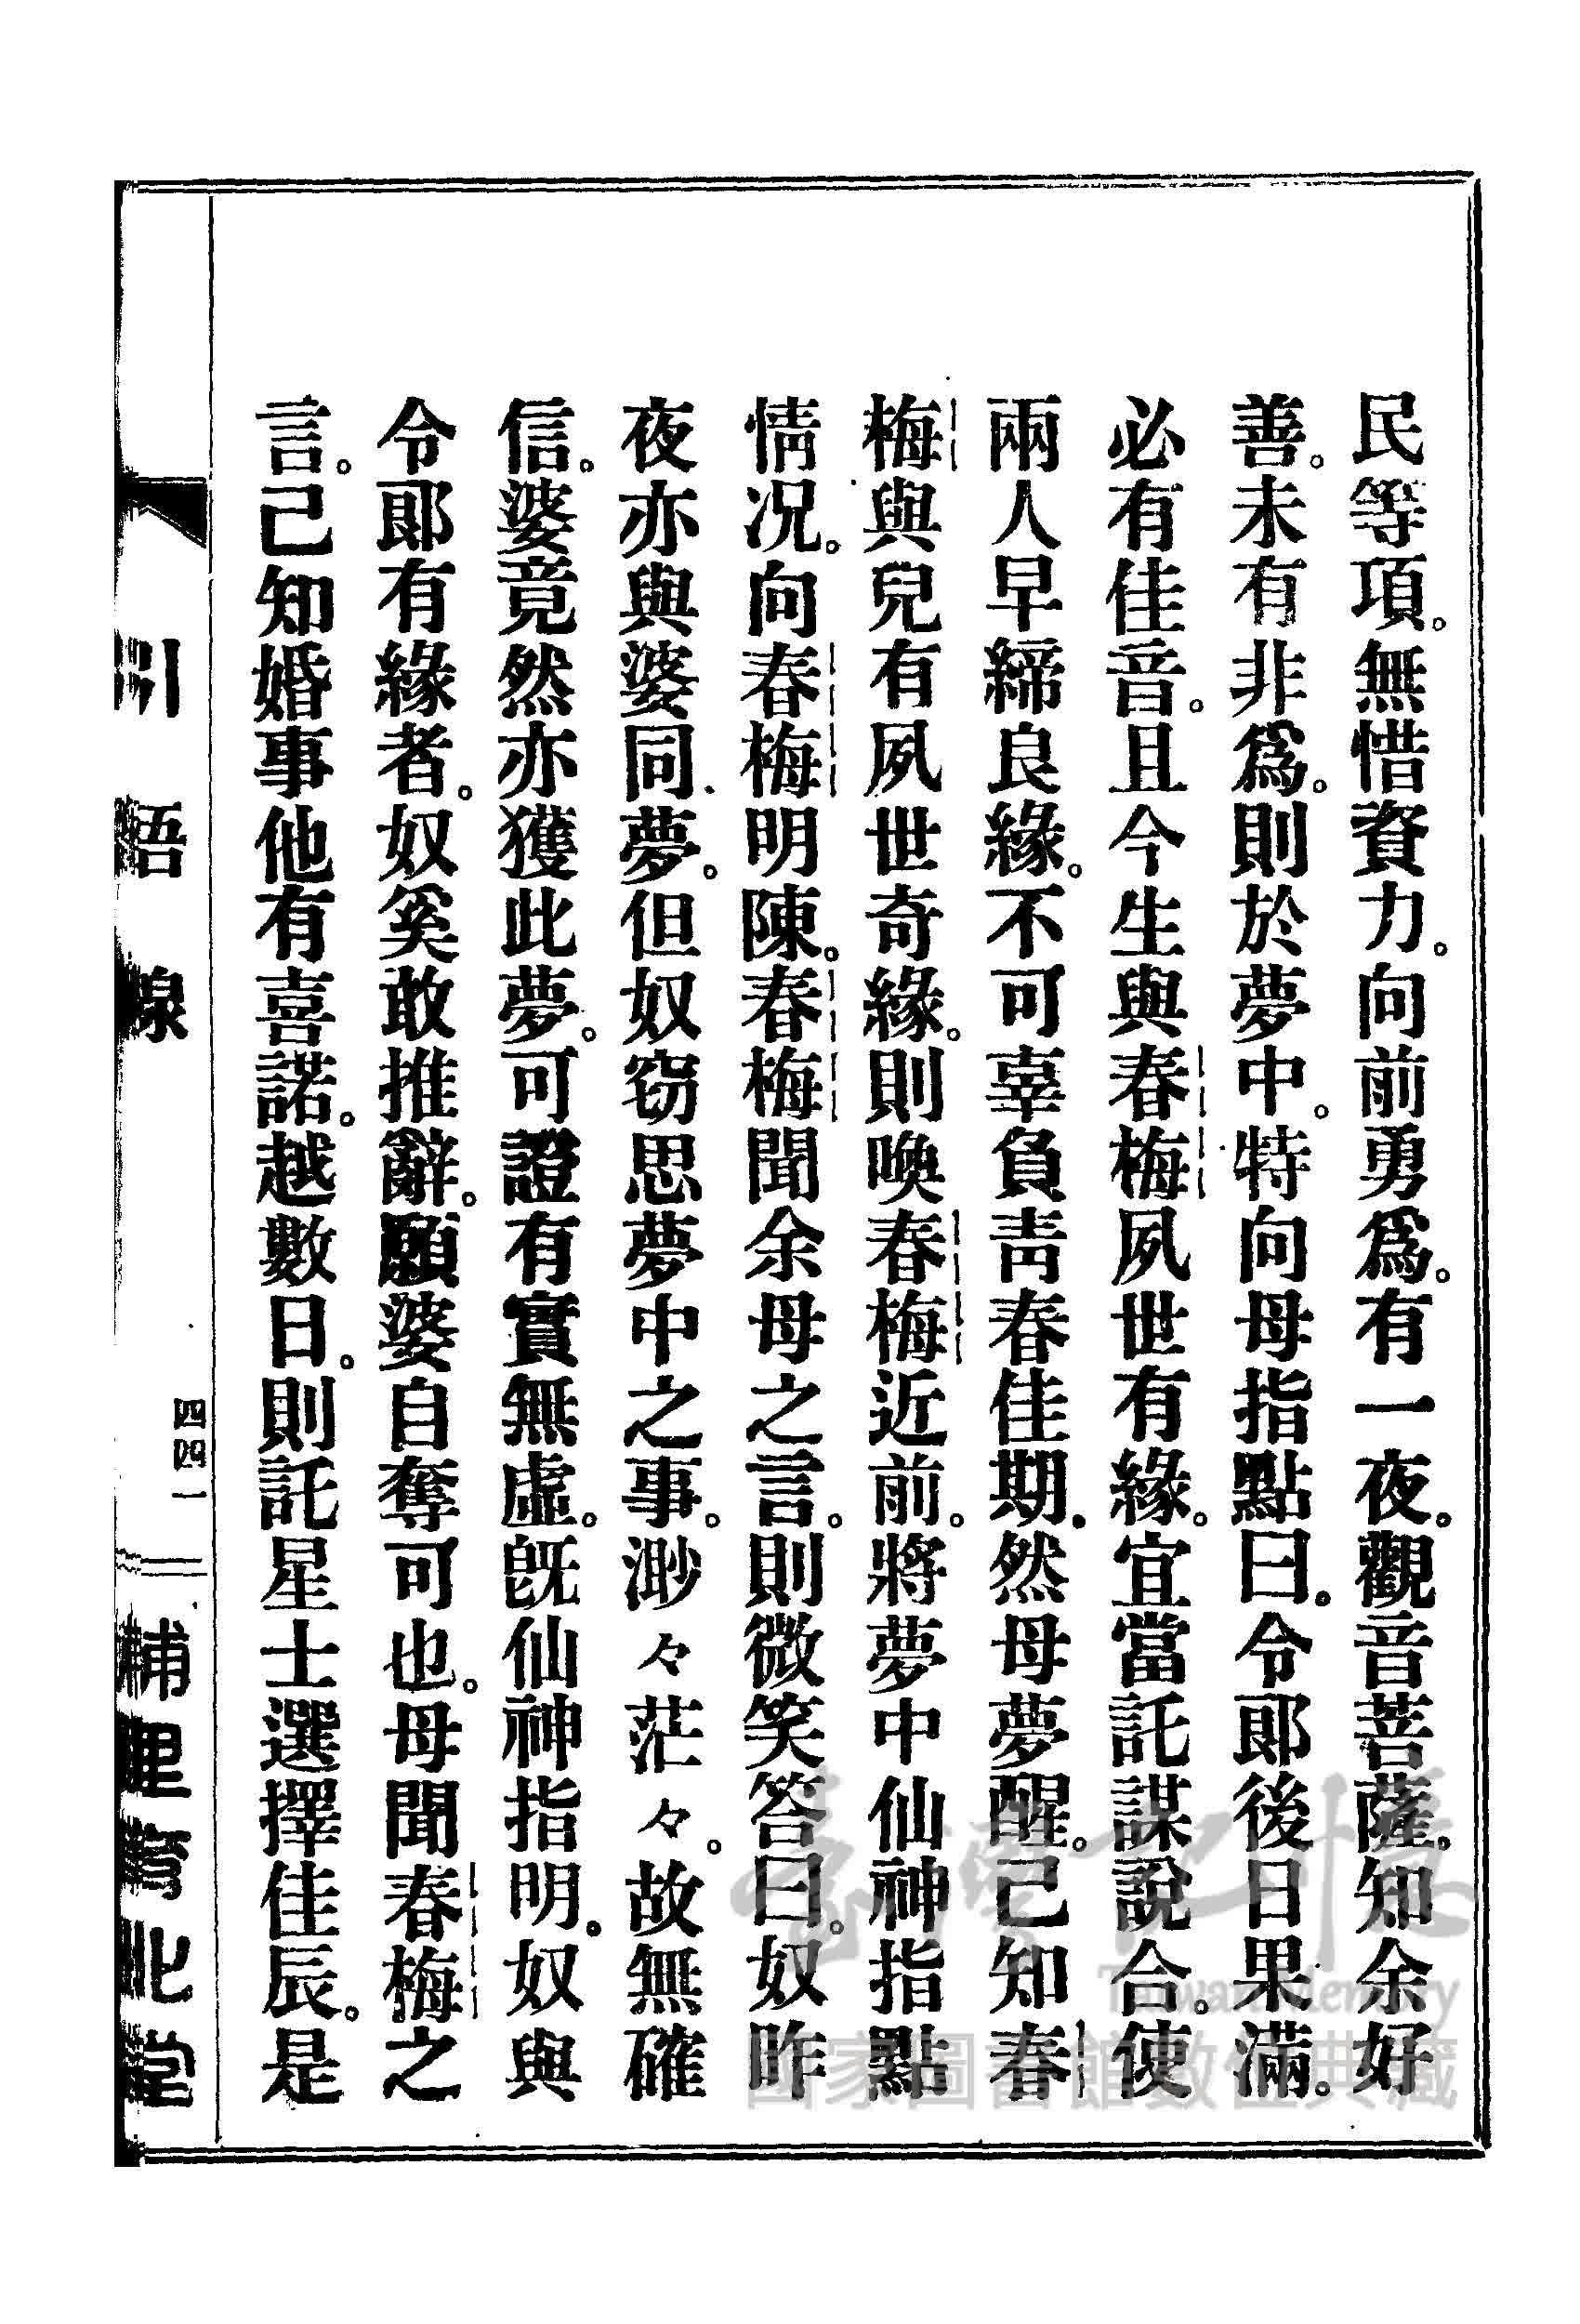 民等項。無惜資力。向前勇爲。有一夜。觀音菩薩。知余好
善。未有非爲。則於夢中。特向母指點曰。令郞後日果滿。
必有佳音。且今生與春梅夙世有緣。宜當託謀說合。使
兩人早締良緣。不可辜負靑春佳期。然母夢醒。己知春
梅與兒有夙世奇緣。則喚春梅近前。將夢中仙神指點
情况。向春梅明陳。春梅聞余母之言。則微笑答曰。奴昨
夜亦與婆同夢。但奴窃思夢中之事。渺々茫々。故無確
信。婆竟然亦獲此夢。可證有實無虛。旣仙神指明。奴與
令郞有緣者。奴奚敢推辭。願婆自奪可也。母聞春梅之
言。己知婚事他有喜諾。越數日。則託星士選擇佳辰。是
引悟線
四四一
育化堂
臺灣記憶
Taiwan Memory
國家圖書館數位典藏